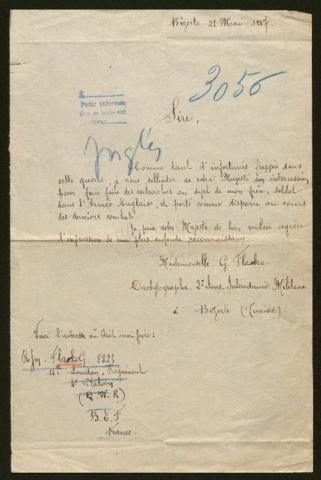 Bizerte 21 Mai 1917.
3056
Sire,
Inglés
Comme tant d'infortunés frappés dans
cette guerre, je viens solliciter de votre Majesté son intercession
pour faire faire des recherches au sujet de mon frère, soldat
dans l'Armée Anglaise, et porté comme disparu au cours
des derniers combats.
Je prie votre Majesté de bien vouloir agréer
l'expression de ma plus profonde reconnaissance
Mademoiselle G. Flack
Dactylographe, Sous Intendance Militaire
à Bizerte (Tunisie).
Voici l'adresse où était mon frère:
Rfn. Flack G
16th London Regiment
(Q W R)
B. E. F
France